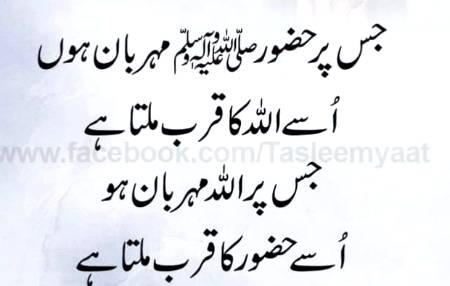 جس پر حضور ﷺ مہربان ہوں
اُسے اللہ کا قرب ملتا ہے
www.facebook.com/Tasleemyaat
جس پر اللہ مہربان ہو
اُسے حضور کا قرب ملتا ہے